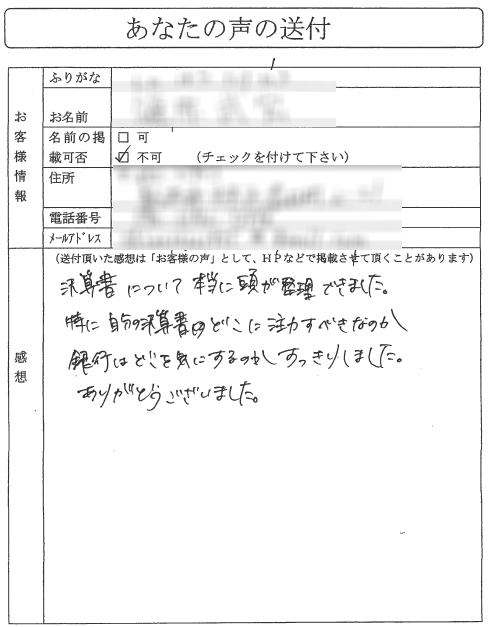 あなたの声の送付
お客様情報
ふりがな
お名前
名前の掲載可否
□ 可
☑ 不可 （チェックを付けて下さい）
住所
電話番号
ﾒｰﾙｱﾄﾞﾚｽ
感想
（送付頂いた感想は「お客様の声」として、ＨＰなどで掲載させて頂くことがあります）
決算書について本当に頭が整理できました。
特に自分の決算書のどこに注力すべきなのか
銀行はどこを気にするのかすっきりしました。
ありがとうございました。